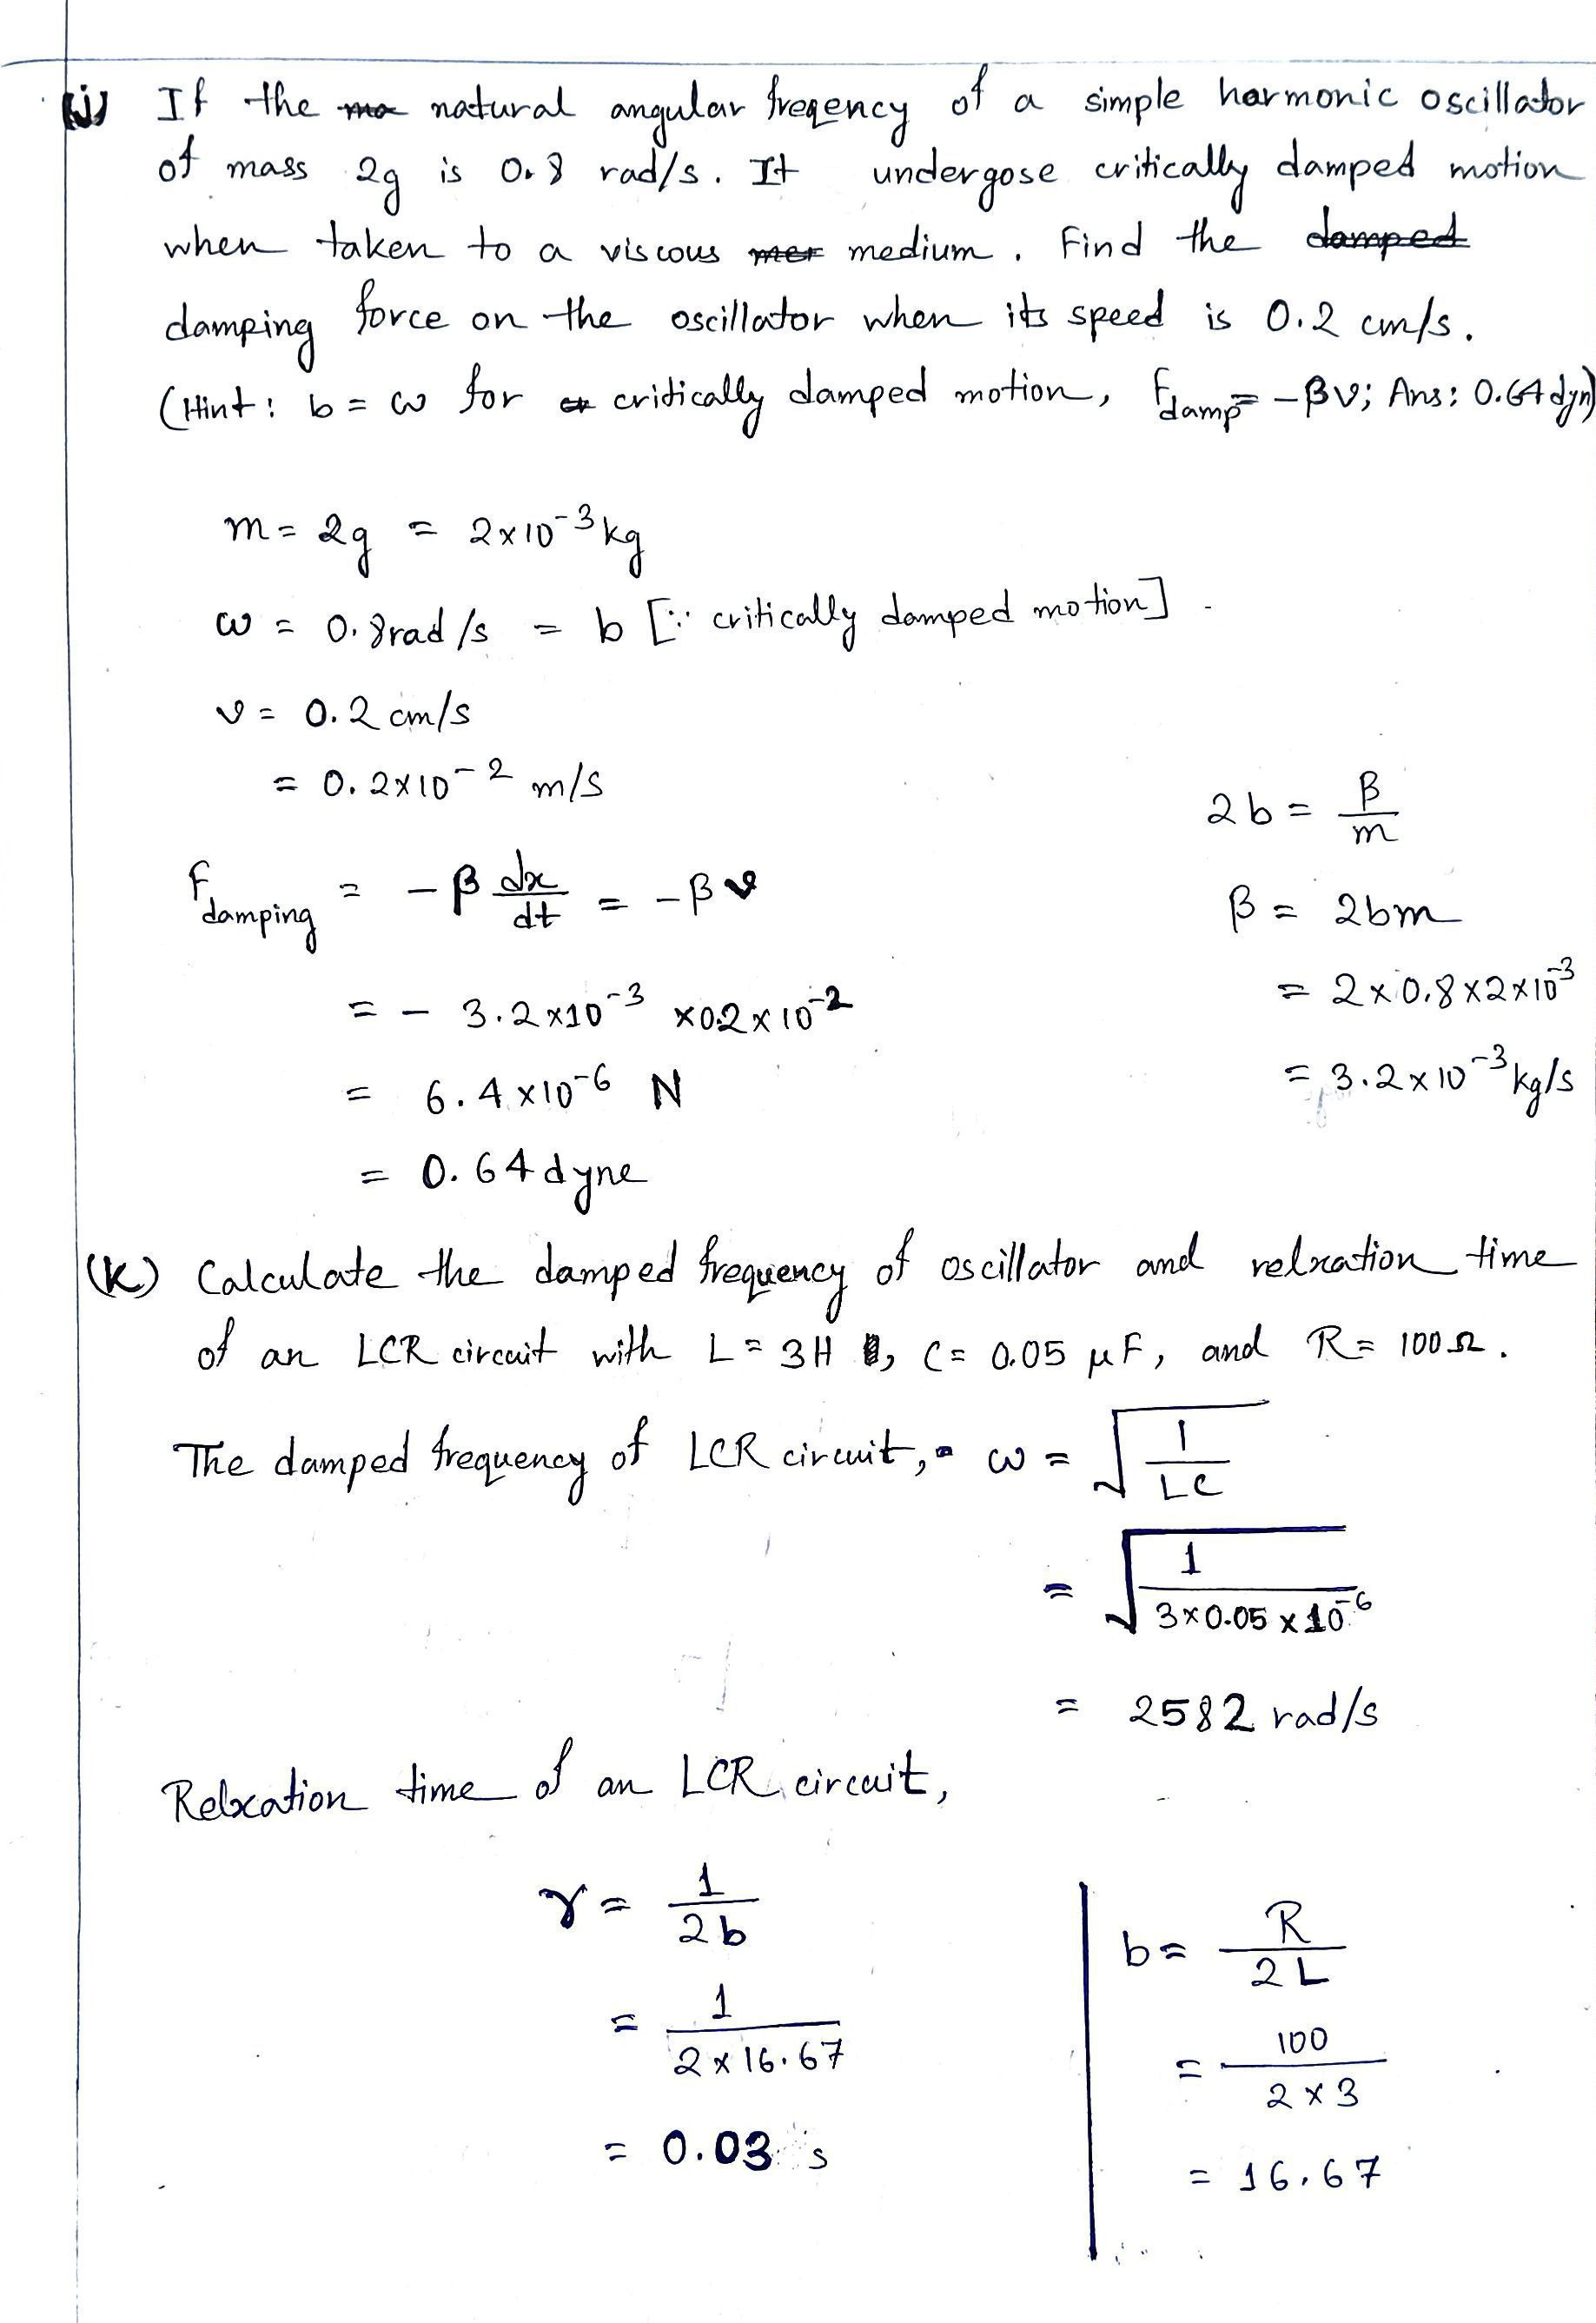 (j) If the ma natural angular freqency of a simple harmonic oscillator
of mass 2g is 0.8 rad/s. It undergose critically damped motion
when taken to a viscous mer medium. Find the damped
damping force on the oscillator when its speed is 0.2 cm/s.
(Hint: b = ω for cr critically damped motion, F_damp = -βv; Ans: 0.64 dyn)
m = 2g = 2×10⁻³ kg
ω = 0.8 rad/s = b [∵ critically damped motion].
v = 0.2 cm/s
= 0.2×10⁻² m/s
2b = β/m
F_damping = -β dx/dt = -βv
β = 2bm
= - 3.2×10⁻³ ×0.2×10⁻²
= 2×0.8×2×10⁻³
= 6.4×10⁻⁶ N
= 3.2×10⁻³ kg/s
= 0.64 dyne
(K) Calculate the damped frequency of oscillator and relxation time
of an LCR circuit with L = 3H, C = 0.05 μF, and R = 100Ω.
The damped frequency of LCR circuit, ω = √(1/LC)
= √(1/(3×0.05×10⁻⁶))
= 2582 rad/s
Relxation time of an LCR circuit,
τ = 1/2b
= 1/(2×16.67)
= 0.03 s
b = R/2L
= 100/(2×3)
= 16.67